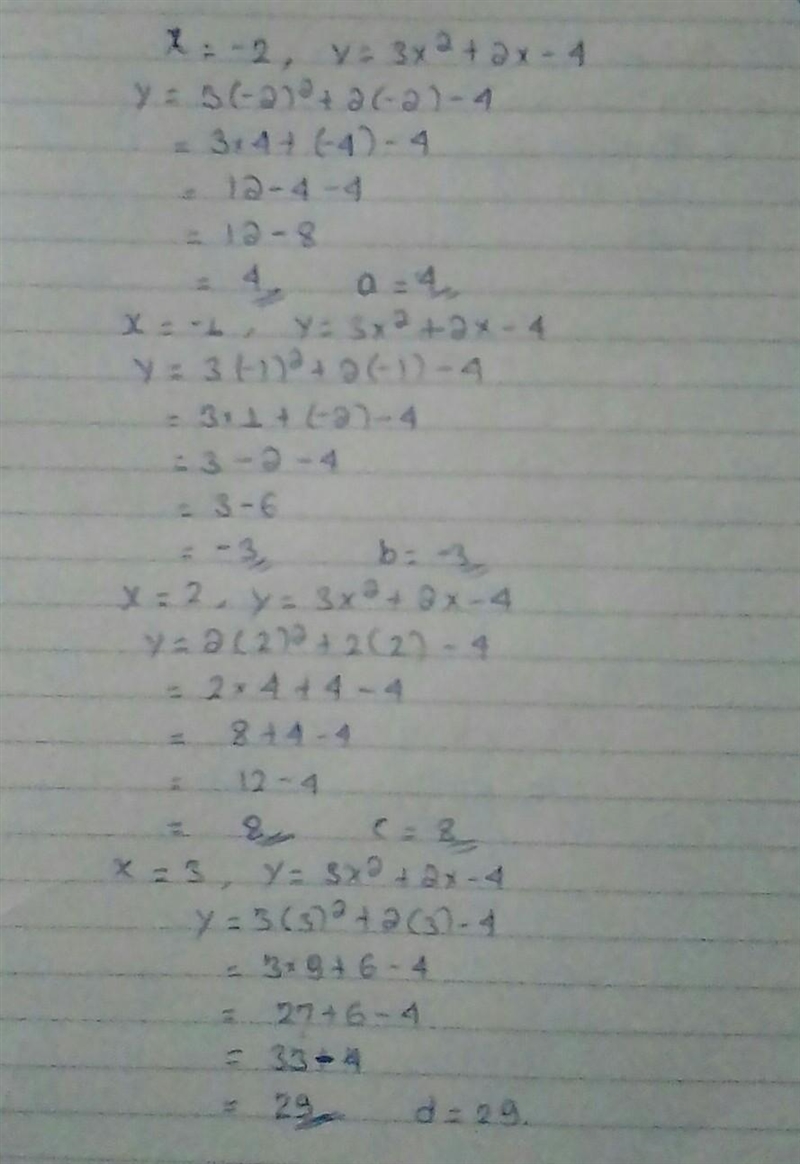 x = -2, y = 3x² + 2x - 4
y = 3(-2)² + 2(-2) - 4
= 3×4 + (-4) - 4
= 12 - 4 - 4
= 12 - 8
= 4 a = 4
x = -1, y = 3x² + 2x - 4
y = 3(-1)² + 2(-1) - 4
= 3×1 + (-2) - 4
= 3 - 2 - 4
= 3 - 6
= -3 b = -3
x = 2, y = 3x² + 2x - 4
y = 2(2)² + 2(2) - 4
= 2×4 + 4 - 4
= 8 + 4 - 4
= 12 - 4
= 8 c = 8
x = 3, y = 3x² + 2x - 4
y = 3(3)² + 2(3) - 4
= 3×9 + 6 - 4
= 27 + 6 - 4
= 33 - 4
= 29 d = 29.